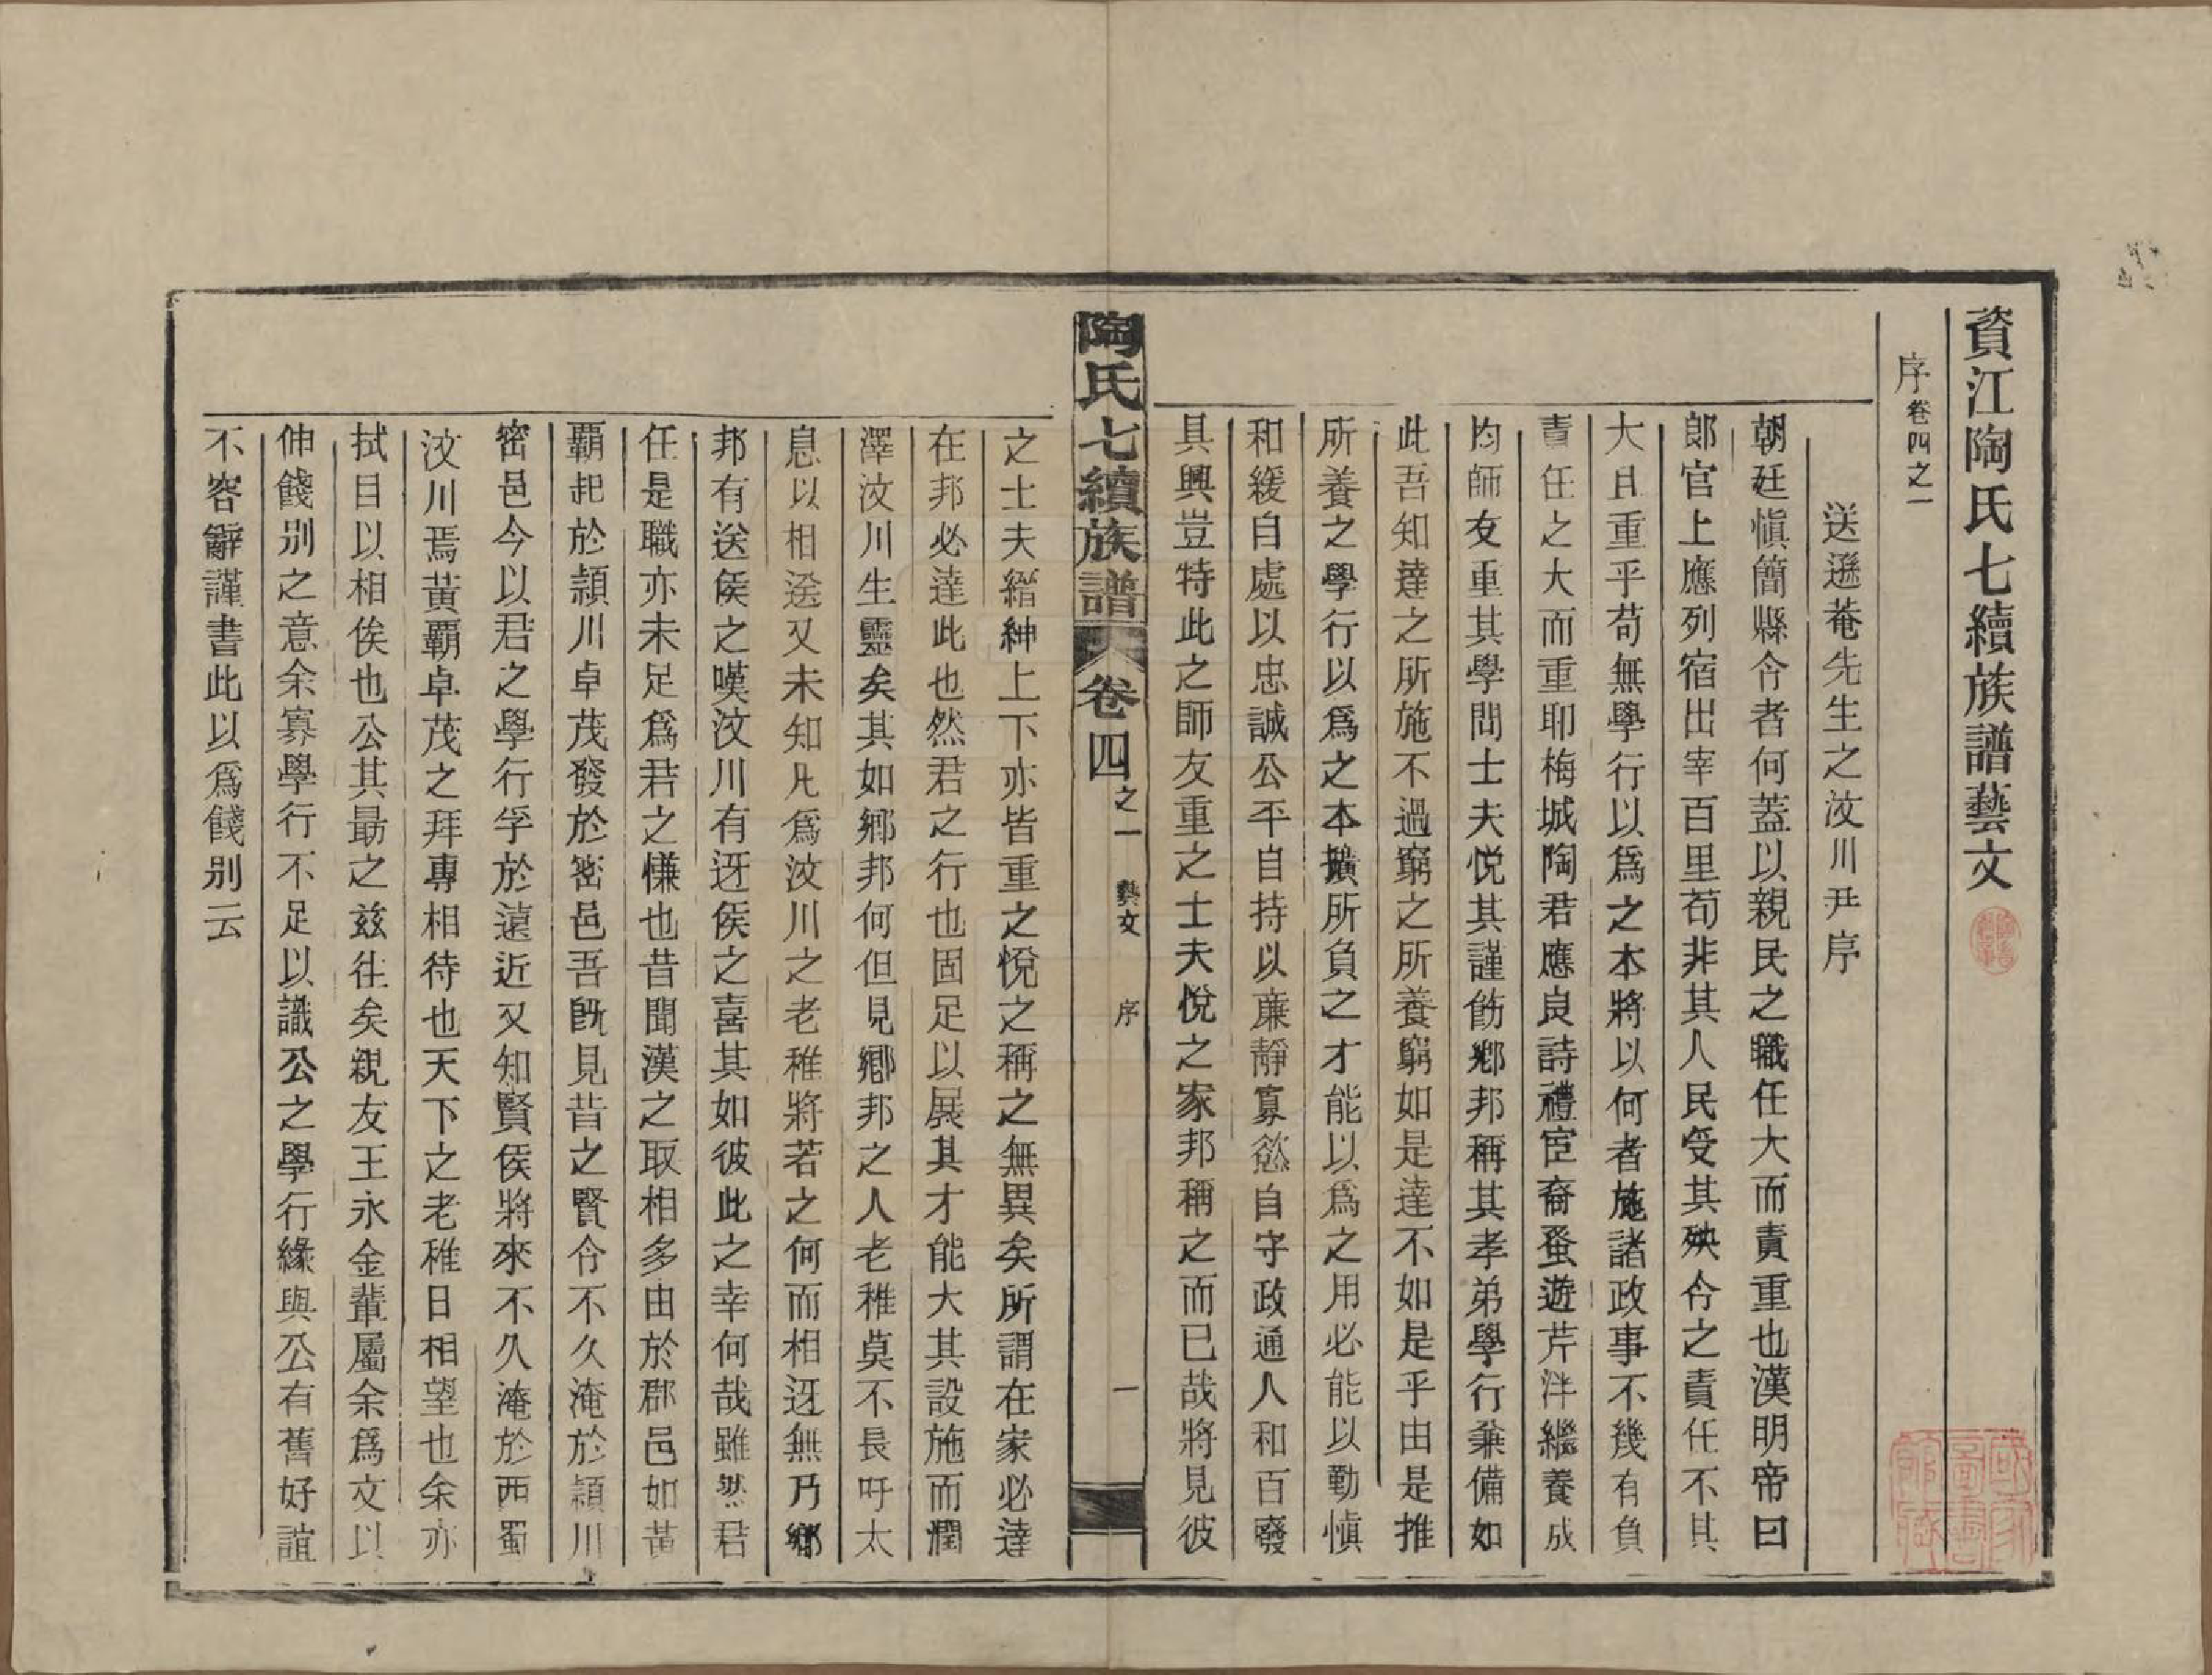 資江陶氏七續族譜藝文
序卷四之一
送遜菴先生之汶川尹序
朝廷慎簡縣令者何蓋以親民之職任大而責重也漢明帝曰
郎官上應列宿出宰百里苟非其人民受其殃今之責任不其
大且重乎苟無學行以爲之本將以何者施諸政事不幾有負
責任之大而重耶梅城陶君應良詩禮宦裔蚤遊芹泮繼養成
均師友重其學問士夫悅其謹飭鄉邦稱其孝弟學行兼備如
此吾知達之所施不過窮之所養窮如是達不如是乎由是推
所養之學行以爲之本擴所負之才能以爲之用必能以勤慎
和緩自處以忠誠公平自持以廉靜寡慾自守政通人和百廢
具興豈特此之師友重之士夫悅之家邦稱之而已哉將見彼
陶氏七續族譜 卷四之一 藝文 序 一
之士夫縉紳上下亦皆重之悅之稱之無異矣所謂在家必達
在邦必達此也然君之行也固足以展其才能大其設施而潤
澤汶川生靈矣其如鄉邦何但見鄉邦之人老稚莫不長吁太
息以相送又未知凡爲汶川之老稚將若之何而相迓無乃鄉
邦有送侯之嘆汶川有迓侯之喜其如彼此之幸何哉雖然君
任是職亦未足爲君之慊也昔聞漢之取相多由於郡邑如黃
霸起於潁川卓茂發於密邑吾旣見昔之賢令不久淹於潁川
密邑今以君之學行孚於遠近又知賢侯將來不久淹於西蜀
汶川焉黃霸卓茂之拜專相待也天下之老稚日相望也余亦
拭目以相俟也公其勗之兹往矣親友王永金輩屬余爲文以
伸餞别之意余寡學行不足以識公之學行緣與公有舊好誼
不容辭謹書此以爲餞别云